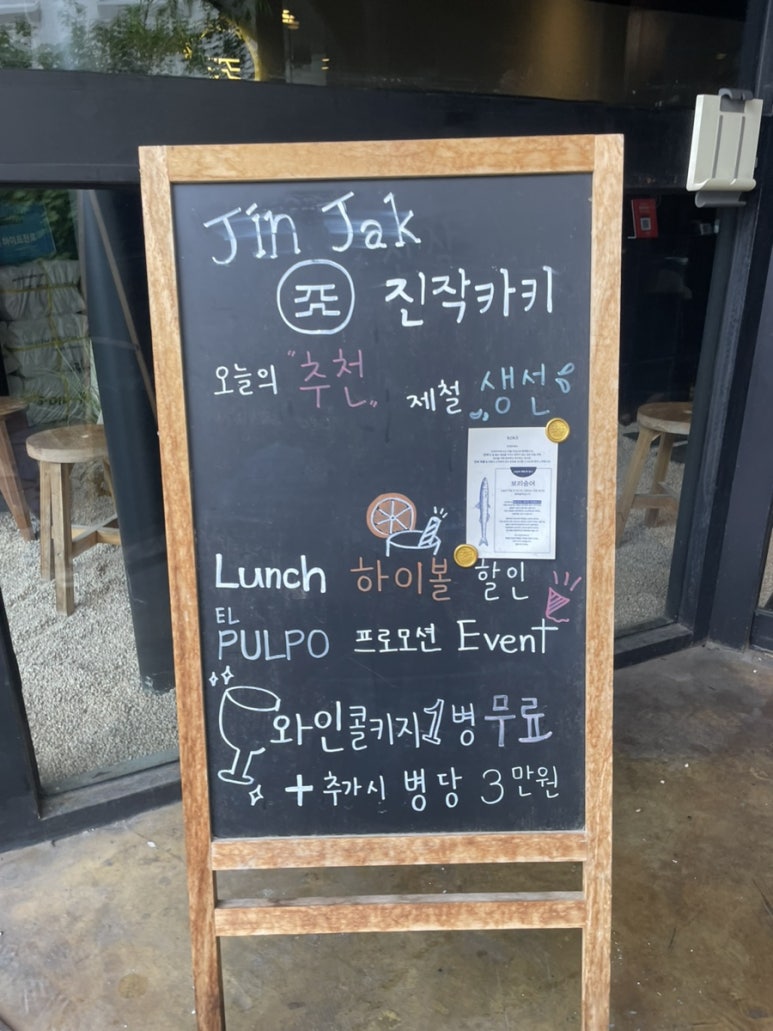 Jin Jak
진작카키
오늘의 "추천"
제철 생선
보리숭어
Lunch 하이볼 할인
EL
PULPO 프로모션 Event
와인콜키지 1병 무료
+ 추가시 병당 3만원